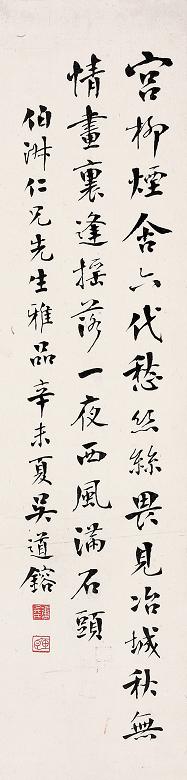 宮柳煙含六代愁絲絲畏見冶城秋無
情畫裏逢搖落一夜西風滿石頭
伯淋仁兄先生雅品辛未夏吳道鎔